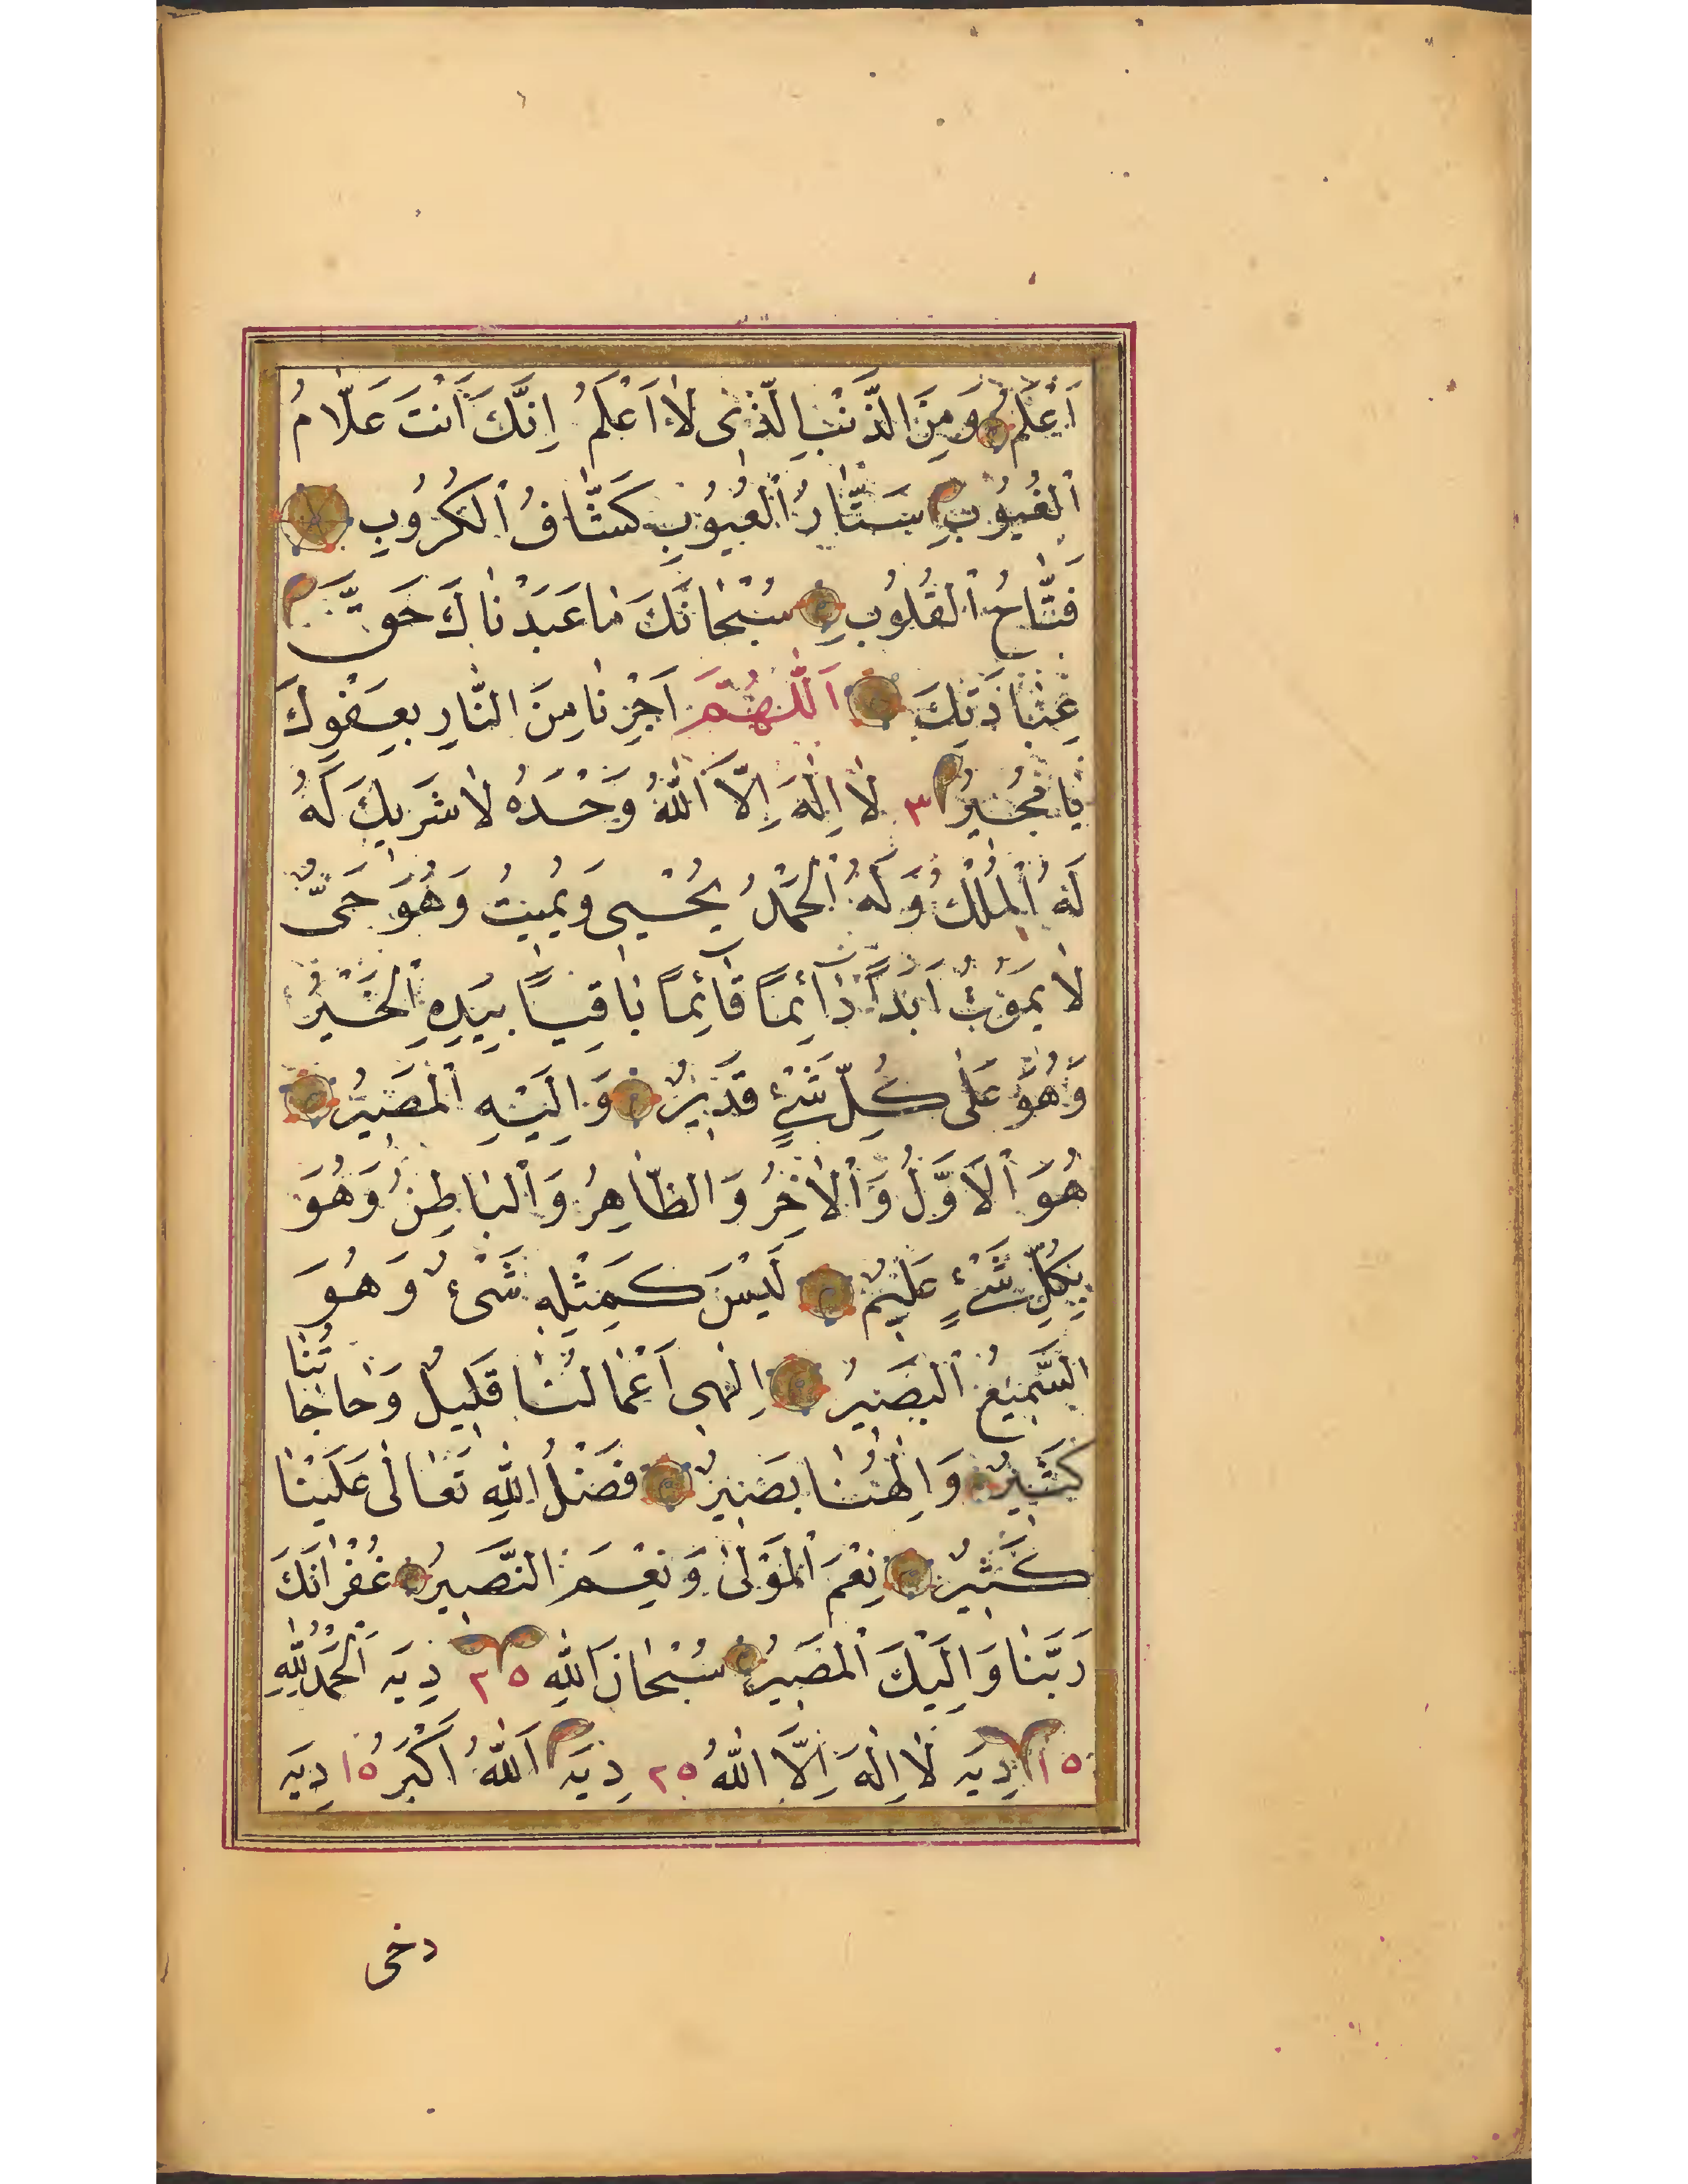 اَعْلَمُ وَمِنَ الذَّنْبِ الَّذٖى لَا اَعْلَمُ اِنَّكَ اَنْتَ عَلَّامُ
الْغُيُوبِ سَتَّارُ الْعُيُوبِ كَشَّافُ الْكُرُوبِ
فَتَّاحُ الْقُلُوبِ سُبْحَانَكَ مَا عَبَدْنَاكَ حَقَّ
عِبَادَتِكَ اَللّٰهُمَّ اَجِرْنَا مِنَ النَّارِ بِعَفْوِكَ
يَا مُجٖيرُ ٣ لَا اِلٰهَ اِلَّا اللّٰهُ وَحْدَهُ لَا شَرٖيكَ لَهُ
لَهُ الْمُلْكُ وَلَهُ الْحَمْدُ يُحْيٖى وَيُمٖيتُ وَهُوَ حَىٌّ
لَا يَمُوتُ اَبَدًا دَآئِمًا قَآئِمًا بَاقِيًا بِيَدِهِ الْخَيْرُ
وَهُوَ عَلٰى كُلِّ شَىْءٍ قَدٖيرٌ وَاِلَيْهِ الْمَصٖيرُ
هُوَ الْاَوَّلُ وَالْاٰخِرُ وَالظَّاهِرُ وَالْبَاطِنُ وَهُوَ
بِكُلِّ شَىْءٍ عَلٖيمٌ لَيْسَ كَمِثْلِهٖ شَىْءٌ وَهُوَ
السَّمٖيعُ الْبَصٖيرُ اِلٰهٖى اَعْمَالُنَا قَلٖيلٌ وَحَاجَاتُنَا
كَثٖيرٌ وَاِلٰهُنَا بَصٖيرٌ فَضْلُ اللّٰهِ تَعَالٰى عَلَيْنَا
كَثٖيرٌ نِعْمَ الْمَوْلٰى وَنِعْمَ النَّصٖيرُ غُفْرَانَكَ
رَبَّنَا وَاِلَيْكَ الْمَصٖيرُ سُبْحَانَ اللّٰهِ ٢٥ دِيَه اَلْحَمْدُ لِلّٰهِ
١٥ دِيَه لَا اِلٰهَ اِلَّا اللّٰهُ ٢٥ دِيَه اَللّٰهُ اَكْبَرُ ١٥ دِيَه
دخى